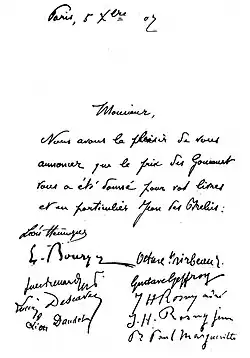 Paris, 5 Xbre 07
Monsieur,
Nous avons le plaisir de vous
annoncer que le prix des Goncourt
vous a été donné pour vos livres
et en particulier Jean des Brebis.
Léon Hennique
E. Bourges Octave Mirbeau
Jules Renard Gustave Geffroy
Lucien Descaves J H Rosny aîné
Léon Daudet J. H. Rosny jeune
P. Paul Margueritte